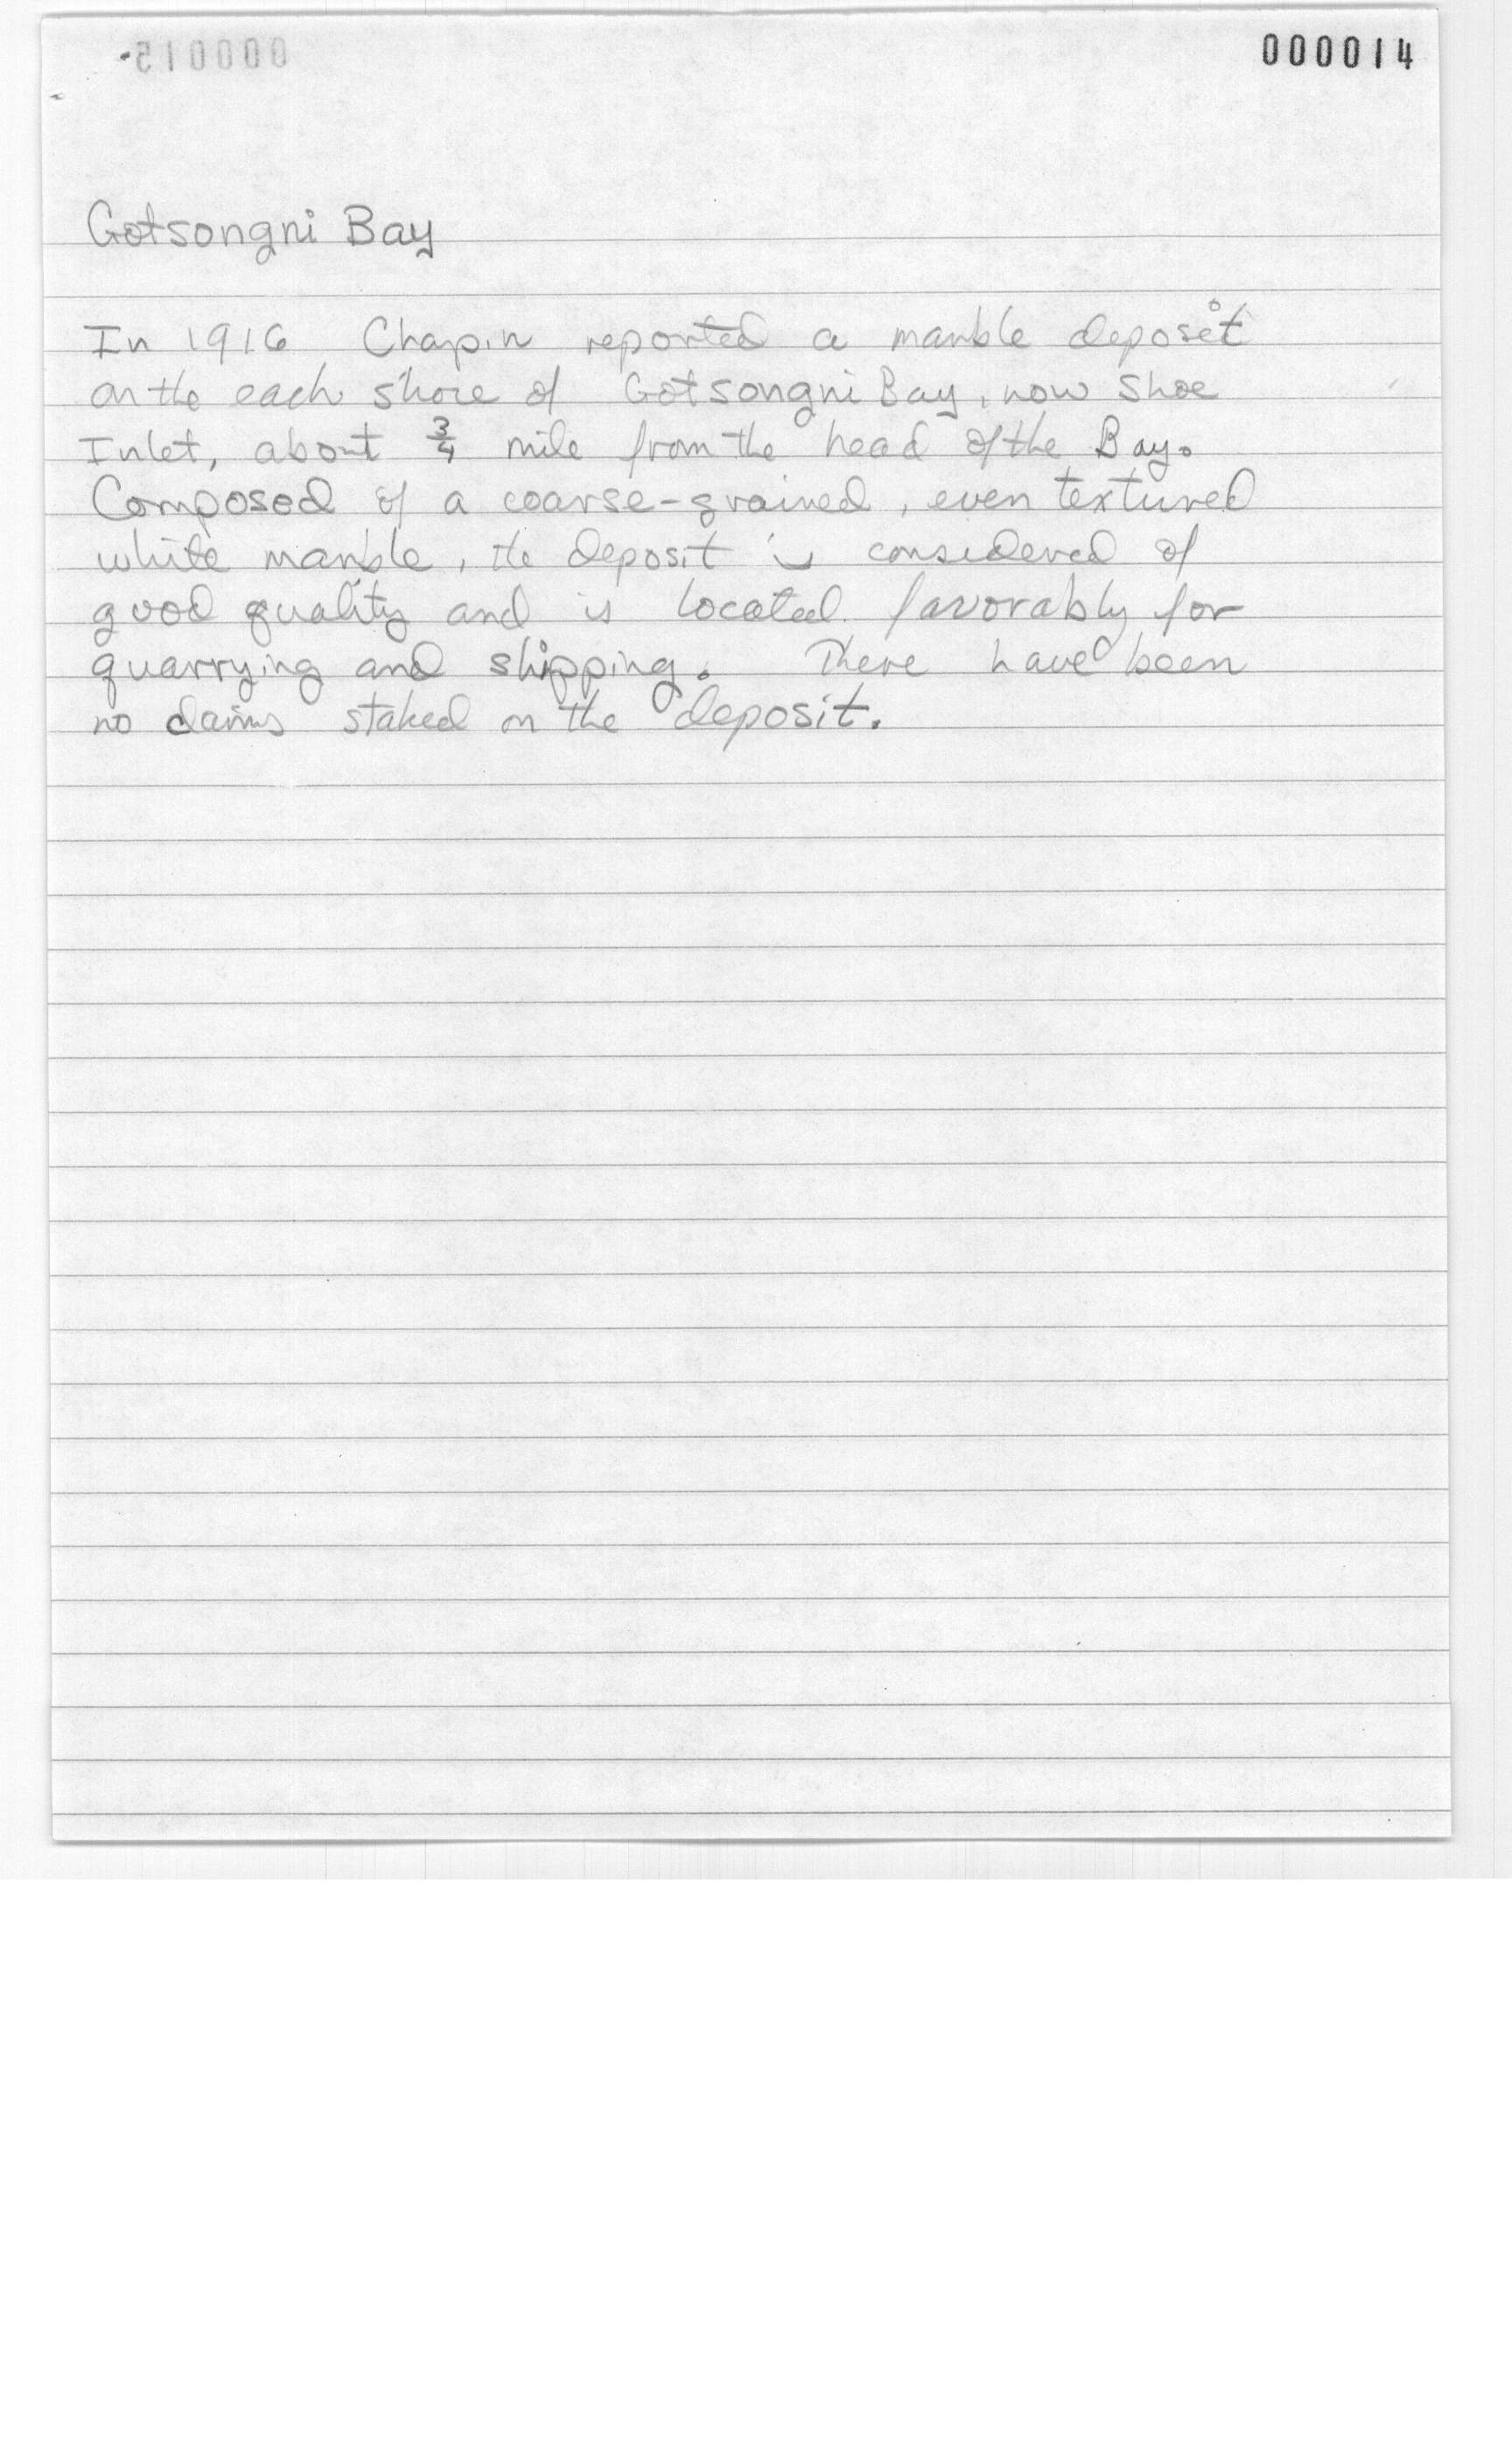 000014
Gotsongni Bay
In 1916 Chapin reported a marble deposit
on the each shore of Gotsongni Bay, now Shoe
Inlet, about 3/4 mile from the head of the Bay.
Composed of a coarse-grained, even textured
white marble, the deposit is considered of
good quality and is located favorably for
quarrying and shipping. There have been
no claims staked on the deposit.